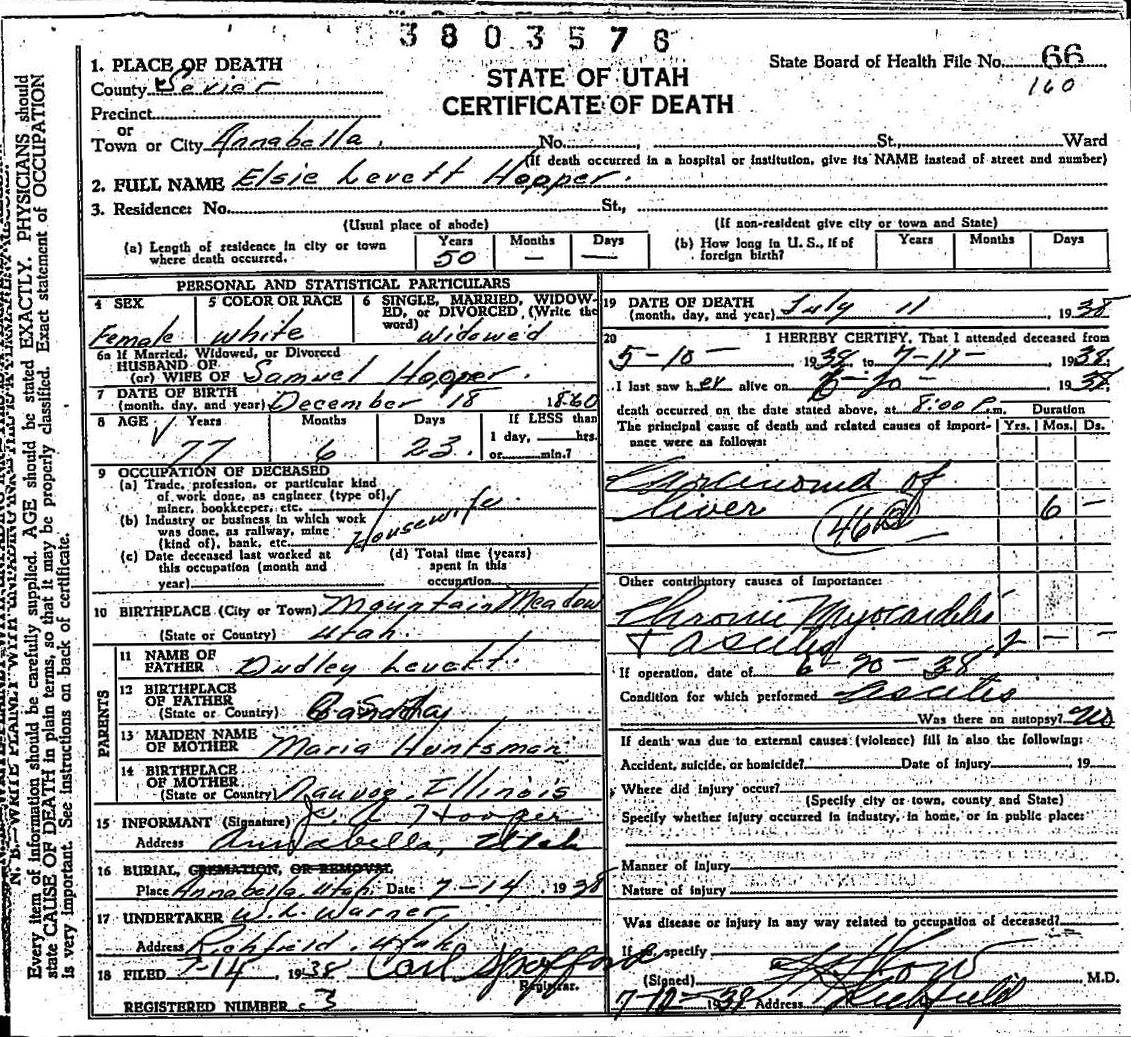 3803578
STATE OF UTAH
CERTIFICATE OF DEATH
State Board of Health File No. 66
160
1. PLACE OF DEATH
County Sevier
Precinct
or
Town or City Annabella. No. St., Ward
(If death occurred in a hospital or institution, give its NAME instead of street and number)
2. FULL NAME Elsie Levett Hopper.
3. Residence: No. St.,
(Usual place of abode) (If non-resident give city or town and State)
(a) Length of residence in city or town where death occurred. Years 50 Months — Days —
(b) How long in U. S., if of foreign birth? Years Months Days
PERSONAL AND STATISTICAL PARTICULARS
4 SEX Female
5 COLOR OR RACE White
6 SINGLE, MARRIED, WIDOWED, or DIVORCED (Write the word) Widowed
6a If Married, Widowed, or Divorced
HUSBAND OF
(or) WIFE OF Samuel Hopper.
7 DATE OF BIRTH
(month, day, and year) December 18 1860
8 AGE Years 77 Months 6 Days 23. If LESS than 1 day, hrs. or min.?
9 OCCUPATION OF DECEASED
(a) Trade, profession, or particular kind
of work done, as engineer (type of),
miner, bookkeeper, etc.
Housewife
(b) Industry or business in which work
was done, as railway, mine
(kind of), bank, etc.
(c) Date deceased last worked at
this occupation (month and
year)
(d) Total time (years)
spent in this
occupation
10 BIRTHPLACE (City or Town) Mountain Meadow
(State or Country) Utah.
PARENTS
11 NAME OF
FATHER Dudley Levett.
12 BIRTHPLACE
OF FATHER
(State or Country)
13 MAIDEN NAME
OF MOTHER Maria Huntsman
14 BIRTHPLACE
OF MOTHER
(State or Country) Nauvoo, Illinois
15 INFORMANT (Signature) Hooper
Address Annabella, Utah
16 BURIAL, CREMATION, OR REMOVAL
Place Annabella, Utah. Date 7-14, 1938
17 UNDERTAKER W. L. Warner,
Address Richfield, Utah
18 FILED 7-14 1938 Carl Spafford
Registrar.
REGISTERED NUMBER 3
19 DATE OF DEATH
(month, day, and year) July 11 1938
20 I HEREBY CERTIFY, That I attended deceased from
5-10- 1938 to 7-11- 1938.
I last saw her alive on 6-20- 1938.
death occurred on the date stated above, at 8:00 P. m. Duration
The principal cause of death and related causes of importance were as follows: Yrs. Mos. Ds.
Carcinoma of
liver 6 -
46
Other contributory causes of importance:
Chronic Myocarditis
+ ascites - -
If operation, date of 6-20-38
Condition for which performed Ascites
Was there an autopsy? No
If death was due to external causes (violence) fill in also the following:
Accident, suicide, or homicide? Date of injury 19
Where did injury occur?
(Specify city or town, county and State)
Specify whether injury occurred in industry, in home, or in public place:
Manner of injury
Nature of injury
Was disease or injury in any way related to occupation of deceased?
If so, specify
(Signed) M.D.
7-12-1938 Address Richfield
N. B.—WRITE PLAINLY WITH
Every item of information should be carefully supplied. AGE should be stated EXACTLY. PHYSICIANS should
state CAUSE OF DEATH in plain terms, so that it may be properly classified. Exact statement of OCCUPATION
is very important. See instructions on back of certificate.